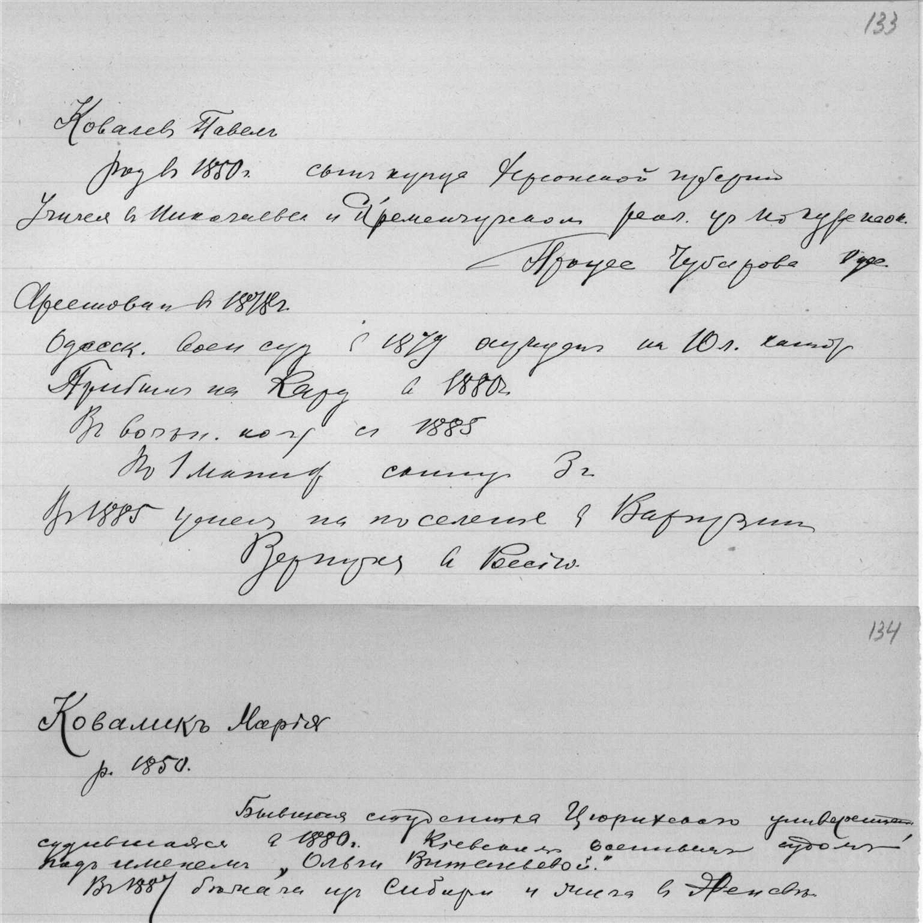 133
Ковалев Павел
род в 1850 г. сын купца Херсонской губернии
Учился в Николаевск и Кременчугском реал. уч
Процес Чубарова
Арестован в 1878 г.
Одесск. воен суд в 1879 осужден на 10 л. катор
Прибыл на Кару в 1880 г.
В вольн. ком с 1885
По манифе 3 г
В 1885 ушел на поселение в Баргузин
Вернулся в Россию.
134
Ковалик Марія
р. 1850.
Бывшая студентка Цюрихского университета
судившаяся в 1880 г. Кіевским военным судом
под именем „Ольги
В 1887 бежала из Сибири и жила в Женеве